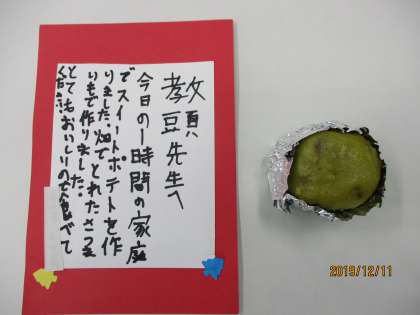 教頭先生へ
今日の1時間の家庭
でスイートポテトを作
りました。畑でとれたさつま
いもで作りました。
とてもおいしいので食べて
ください。
2019/12/11